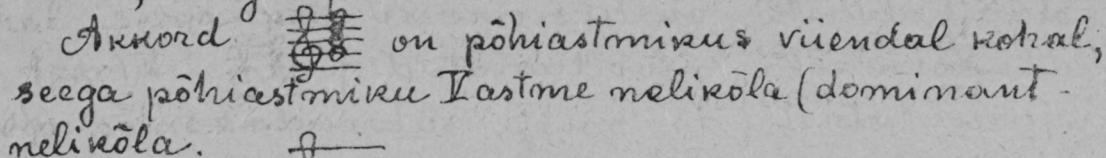 Akkord on põhiastmikus viiendal kohal,
seega põhiastmiku V astme nelikõla (dominant-
nelikõla.